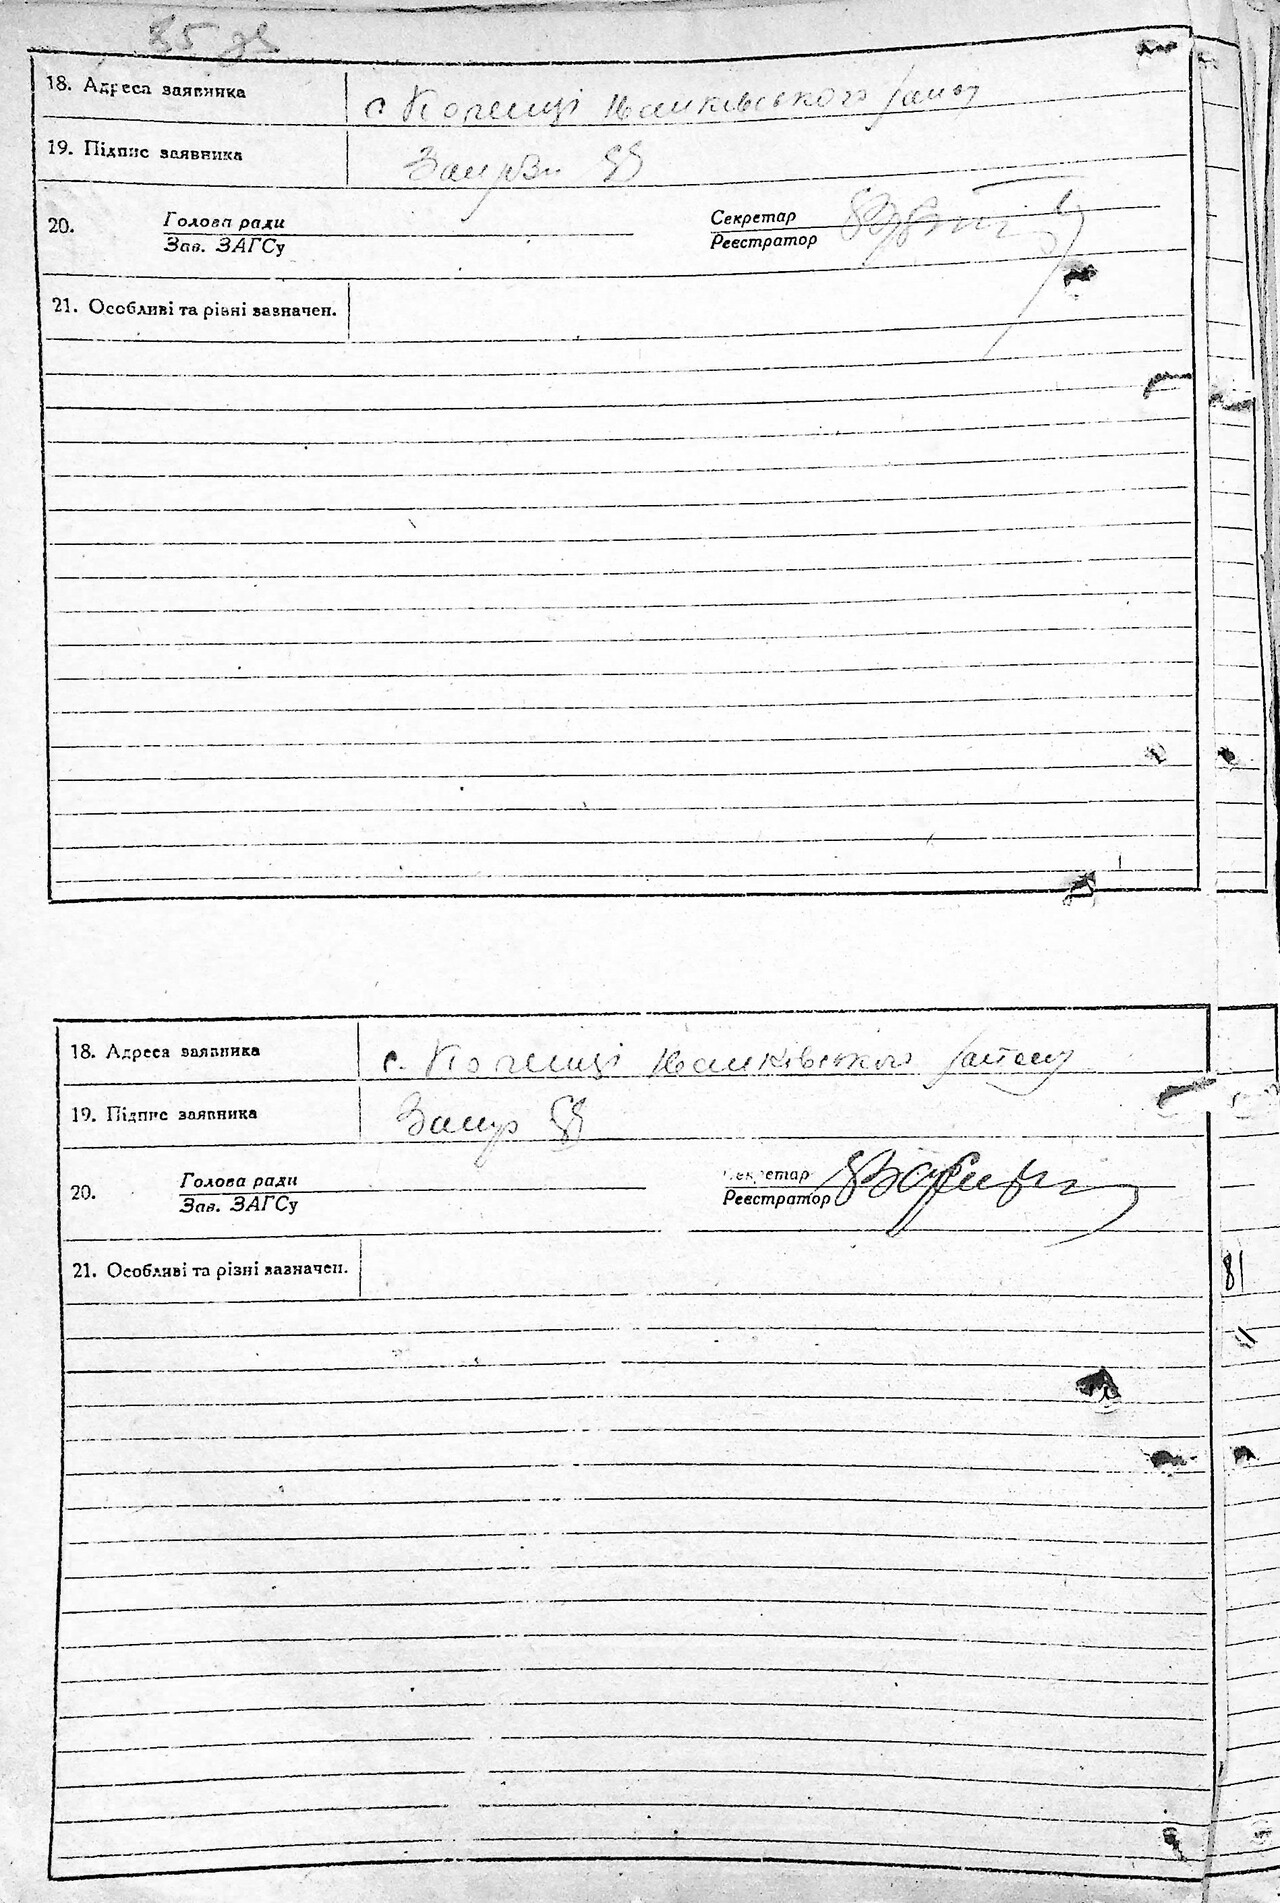 18. Адреса заявника с. Коленці Іванківського району
19. Підпис заявника
20. Голова ради Секретар
Зав. ЗАГСу Реєстратор
21. Особливі та різні зазначен.
18. Адреса заявника с. Коленці Іванківського району
19. Підпис заявника
20. Голова ради Секретар
Зав. ЗАГСу Реєстратор
21. Особливі та різні зазначен.
81